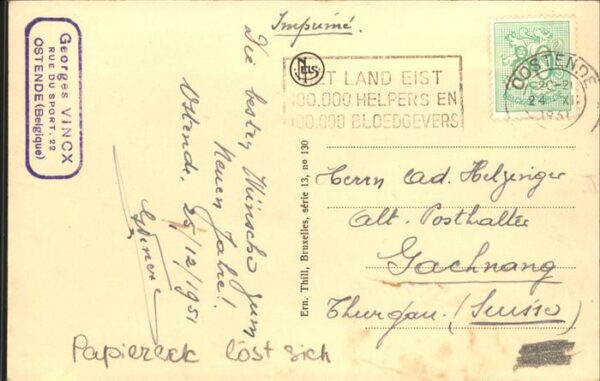 Georges VINCX
RUE DU SPORT. 22
OSTENDE (Belgique)
Imprimé.
Die besten Wünsche zum
Neuen Jahre!
Ostende, 25/12/1951
GVincx
NELS
HET LAND EIST
100.000 HELPERS EN
100.000 BLOEDGEVERS
OOSTENDE
24 XII
1951
Ern. Thill, Bruxelles, série 13, no 130
Herrn Ad. Helzinger
Alt. Posthalter
Gachnang
Thurgau. (Suisse)
Papiereck löst sich